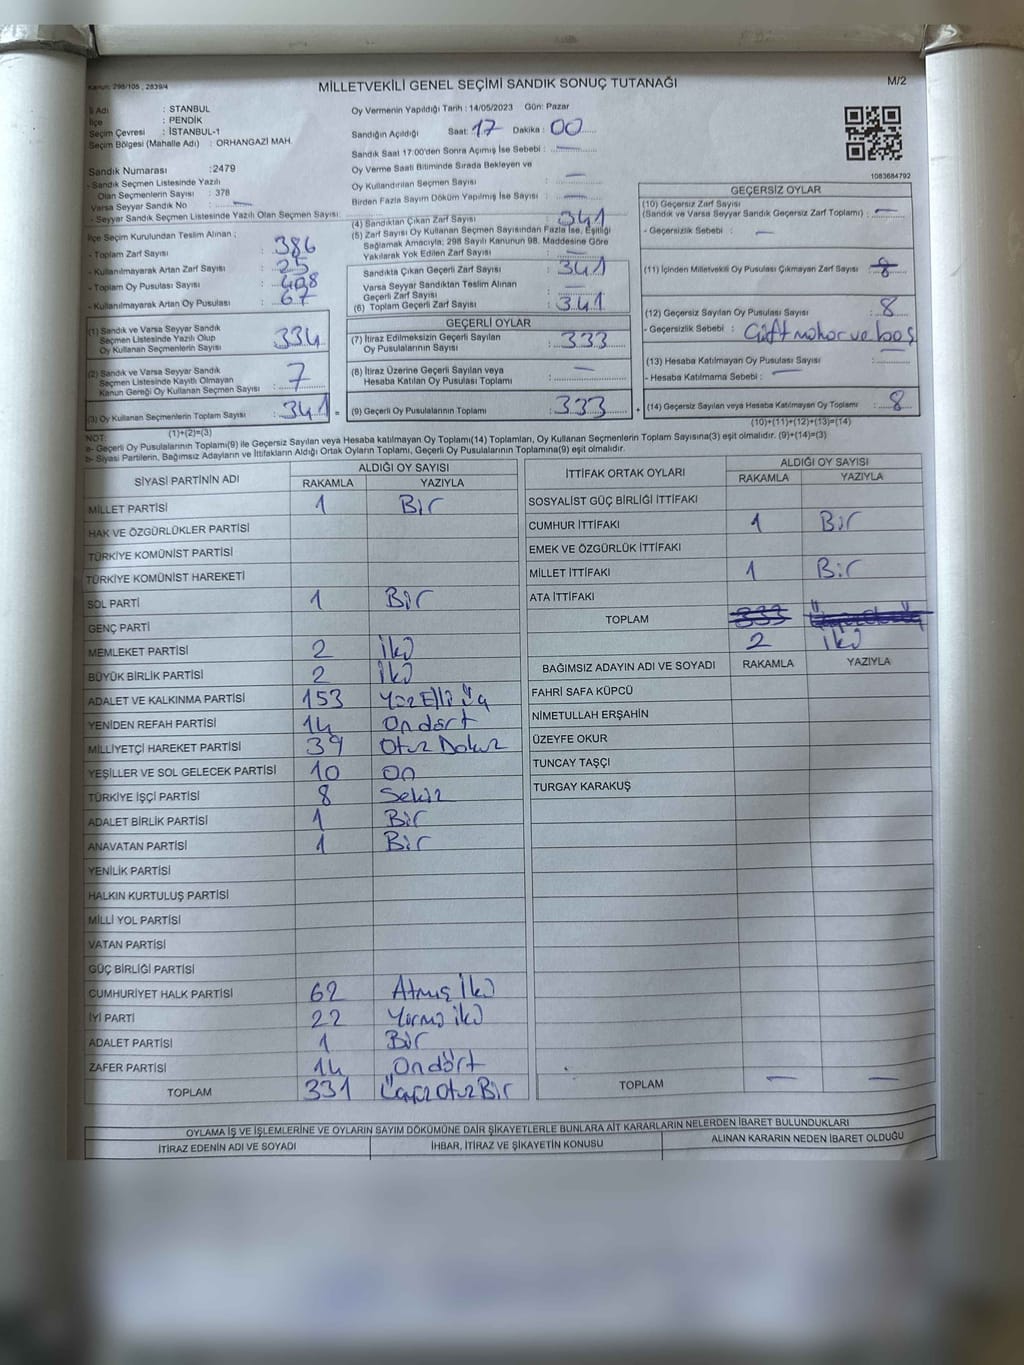 Kanun: 298/105 , 2839/4
MİLLETVEKİLİ GENEL SEÇİMİ SANDIK SONUÇ TUTANAĞI
M/2
İl Adı : STANBUL
İlçe : PENDİK
Seçim Çevresi : İSTANBUL-1
Seçim Bölgesi (Mahalle Adı) : ORHANGAZİ MAH.
Sandık Numarası :2479
- Sandık Seçmen Listesinde Yazılı
Olan Seçmenlerin Sayısı : 378
Varsa Seyyar Sandık No : —
- Seyyar Sandık Seçmen Listesinde Yazılı Olan Seçmen Sayısı:
Oy Vermenin Yapıldığı Tarih : 14/05/2023 Gün: Pazar
Sandığın Açıldığı Saat: 17 Dakika : 00
Sandık Saat 17:00'den Sonra Açımış İse Sebebi : —
Oy Verme Saati Bitiminde Sırada Bekleyen ve
Oy Kullandırılan Seçmen Sayısı : —
Birden Fazla Sayım Döküm Yapılmış İse Sayısı : —
1083684792
İlçe Seçim Kurulundan Teslim Alınan ;
- Toplam Zarf Sayısı : 386
- Kullanılmayarak Artan Zarf Sayısı : 25
- Toplam Oy Pusulası Sayısı : 408
- Kullanılmayarak Artan Oy Pusulası : 67
(1) Sandık ve Varsa Seyyar Sandık
Seçmen Listesinde Yazılı Olup
Oy Kullanan Seçmenlerin Sayısı : 334
(2) Sandık ve Varsa Seyyar Sandık
Seçmen Listesinde Kayıtlı Olmayan
Kanun Gereği Oy Kullanan Seçmen Sayısı : 7
(3) Oy Kullanan Seçmenlerin Toplam Sayısı : 341 =
(1)+(2)=(3)
(4) Sandıktan Çıkan Zarf Sayısı : 341
(5) Zarf Sayısı Oy Kullanan Seçmen Sayısından Fazla İse, Eşitliği
Sağlamak Amacıyla; 298 Sayılı Kanunun 98. Maddesine Göre
Yakılarak Yok Edilen Zarf Sayısı : —
Sandıkta Çıkan Geçerli Zarf Sayısı : 341
Varsa Seyyar Sandıktan Teslim Alınan
Geçerli Zarf Sayısı : —
(6) Toplam Geçerli Zarf Sayısı : 341
GEÇERLİ OYLAR
(7) İtiraz Edilmeksizin Geçerli Sayılan
Oy Pusulalarının Sayısı : 333
(8) İtiraz Üzerine Geçerli Sayılan veya
Hesaba Katılan Oy Pusulası Toplamı : —
(9) Geçerli Oy Pusulalarının Toplamı : 333 +
GEÇERSİZ OYLAR
(10) Geçersiz Zarf Sayısı
(Sandık ve Varsa Seyyar Sandık Geçersiz Zarf Toplamı) : —
- Geçersizlik Sebebi : —
(11) İçinden Milletvekili Oy Pusulası Çıkmayan Zarf Sayısı : 8
(12) Geçersiz Sayılan Oy Pusulası Sayısı : 8
- Geçersizlik Sebebi : Çift mühür ve boş
(13) Hesaba Katılmayan Oy Pusulası Sayısı : —
- Hesaba Katılmama Sebebi : —
(14) Geçersiz Sayılan veya Hesaba Katılmayan Oy Toplamı : 8
(10)+(11)+(12)+(13)=(14)
NOT:
a- Geçerli Oy Pusulalarının Toplamı(9) ile Geçersiz Sayılan veya Hesaba katılmayan Oy Toplamı(14) Toplamları, Oy Kullanan Seçmenlerin Toplam Sayısına(3) eşit olmalıdır. (9)+(14)=(3)
b- Siyasi Partilerin, Bağımsız Adayların ve İttifakların Aldığı Ortak Oyların Toplamı, Geçerli Oy Pusulalarının Toplamına(9) eşit olmalıdır.
SİYASİ PARTİNİN ADI ALDIĞI OY SAYISI
RAKAMLA YAZIYLA
MİLLET PARTİSİ 1 Bir
HAK VE ÖZGÜRLÜKLER PARTİSİ
TÜRKİYE KOMÜNİST PARTİSİ
TÜRKİYE KOMÜNİST HAREKETİ
SOL PARTİ 1 Bir
GENÇ PARTİ
MEMLEKET PARTİSİ 2 İki
BÜYÜK BİRLİK PARTİSİ 2 İki
ADALET VE KALKINMA PARTİSİ 153 Yüz Elli üç
YENİDEN REFAH PARTİSİ 14 Ondört
MİLLİYETÇİ HAREKET PARTİSİ 39 Otuz Dokuz
YEŞİLLER VE SOL GELECEK PARTİSİ 10 on
TÜRKİYE İŞÇİ PARTİSİ 8 Sekiz
ADALET BİRLİK PARTİSİ 1 Bir
ANAVATAN PARTİSİ 1 Bir
YENİLİK PARTİSİ
HALKIN KURTULUŞ PARTİSİ
MİLLİ YOL PARTİSİ
VATAN PARTİSİ
GÜÇ BİRLİĞİ PARTİSİ
CUMHURİYET HALK PARTİSİ 62 Atmış İki
İYİ PARTİ 22 Yirmi iki
ADALET PARTİSİ 1 Bir
ZAFER PARTİSİ 14 Ondört
TOPLAM 331 Üçyüz Otuz Bir
İTTİFAK ORTAK OYLARI ALDIĞI OY SAYISI
RAKAMLA YAZIYLA
SOSYALİST GÜÇ BİRLİĞİ İTTİFAKI
CUMHUR İTTİFAKI 1 Bir
EMEK VE ÖZGÜRLÜK İTTİFAKI
MİLLET İTTİFAKI 1 Bir
ATA İTTİFAKI
TOPLAM 333
2 iki
BAĞIMSIZ ADAYIN ADI VE SOYADI RAKAMLA YAZIYLA
FAHRİ SAFA KÜPCÜ
NİMETULLAH ERŞAHİN
ÜZEYFE OKUR
TUNCAY TAŞÇI
TURGAY KARAKUŞ
TOPLAM — —
OYLAMA İŞ VE İŞLEMLERİNE VE OYLARIN SAYIM DÖKÜMÜNE DAİR ŞİKAYETLERLE BUNLARA AİT KARARLARIN NELERDEN İBARET BULUNDUKLARI
İTİRAZ EDENİN ADI VE SOYADI İHBAR, İTİRAZ VE ŞİKAYETİN KONUSU ALINAN KARARIN NEDEN İBARET OLDUĞU